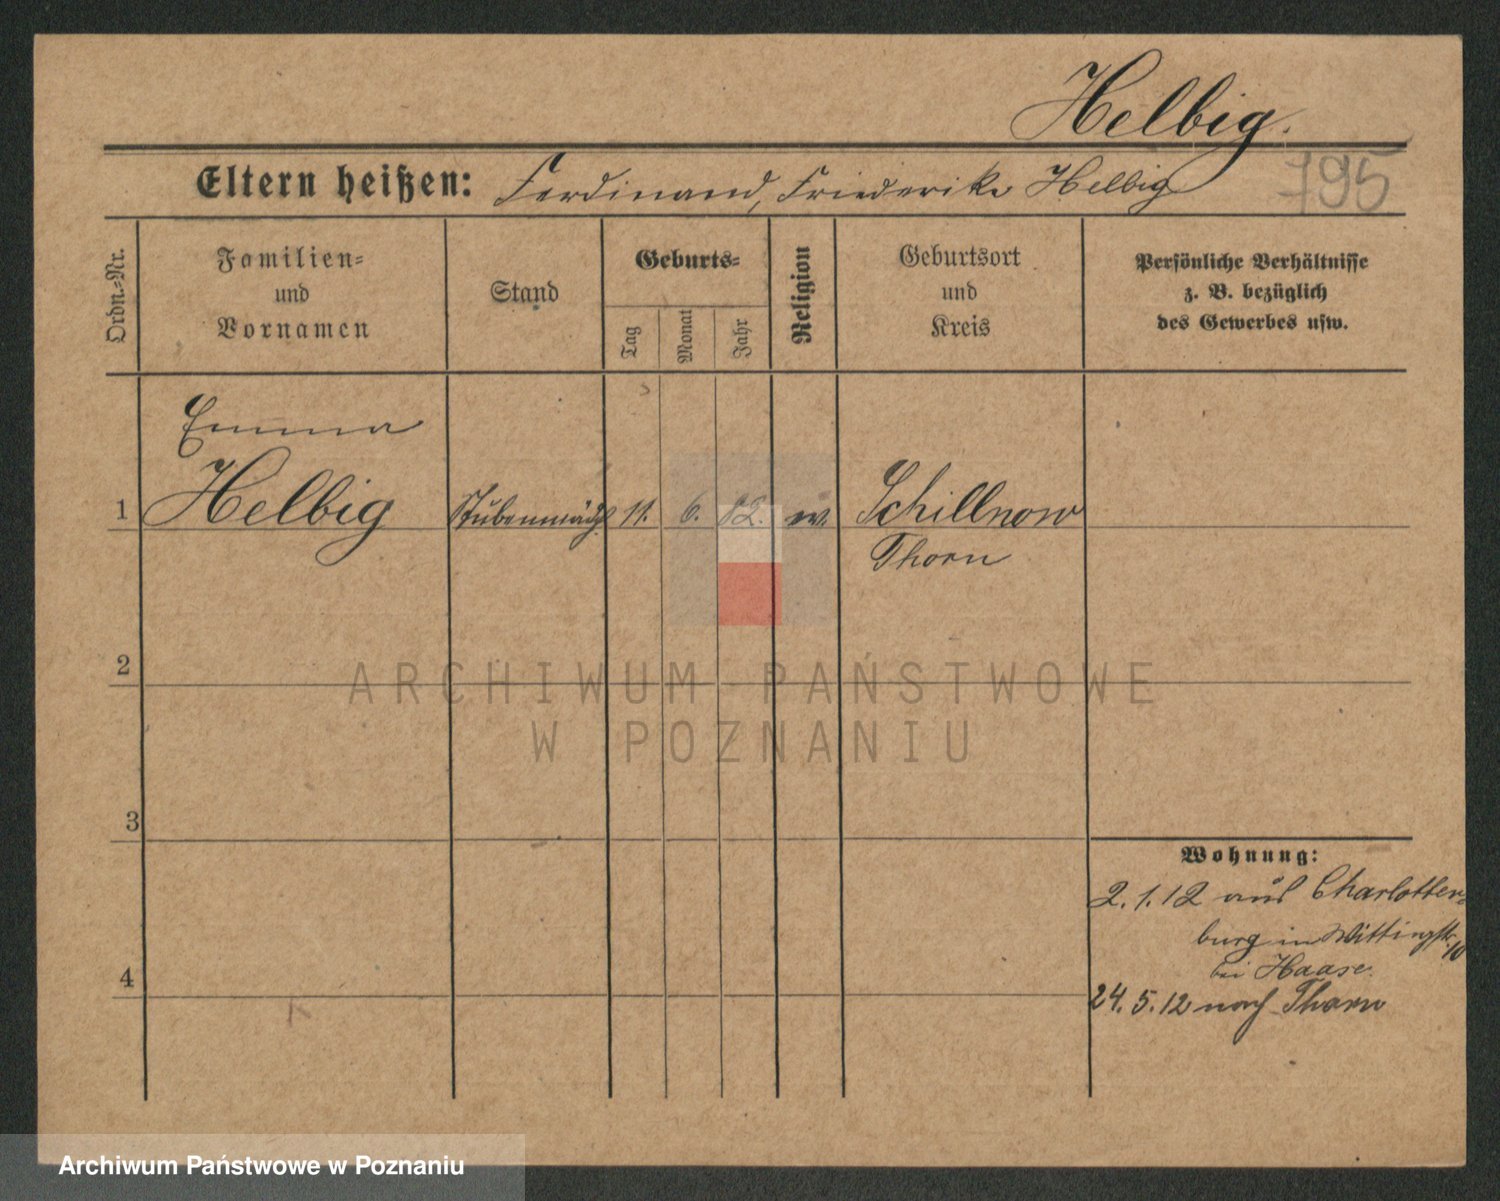 Helbig.
Eltern heißen: Ferdinand, Friederike Helbig
795
Ordn.-Nr.
Familien-
und
Vornamen
Stand
Geburts-
Tag
Monat
Jahr
Religion
Geburtsort
und
Kreis
Persönliche Verhältnisse
z. B. bezüglich
des Gewerbes usw.
Emma
1 Helbig Stubenmädch 11. 6. 82. ev. Schillnow
Thorn
2
ARCHIWUM PAŃSTWOWE
W POZNANIU
3
Wohnung:
2.1.12 aus Charlotten-
burg in Wittingstr. 10
bei Haase.
4
24.5.12 nach Thorn
Archiwum Państwowe w Poznaniu